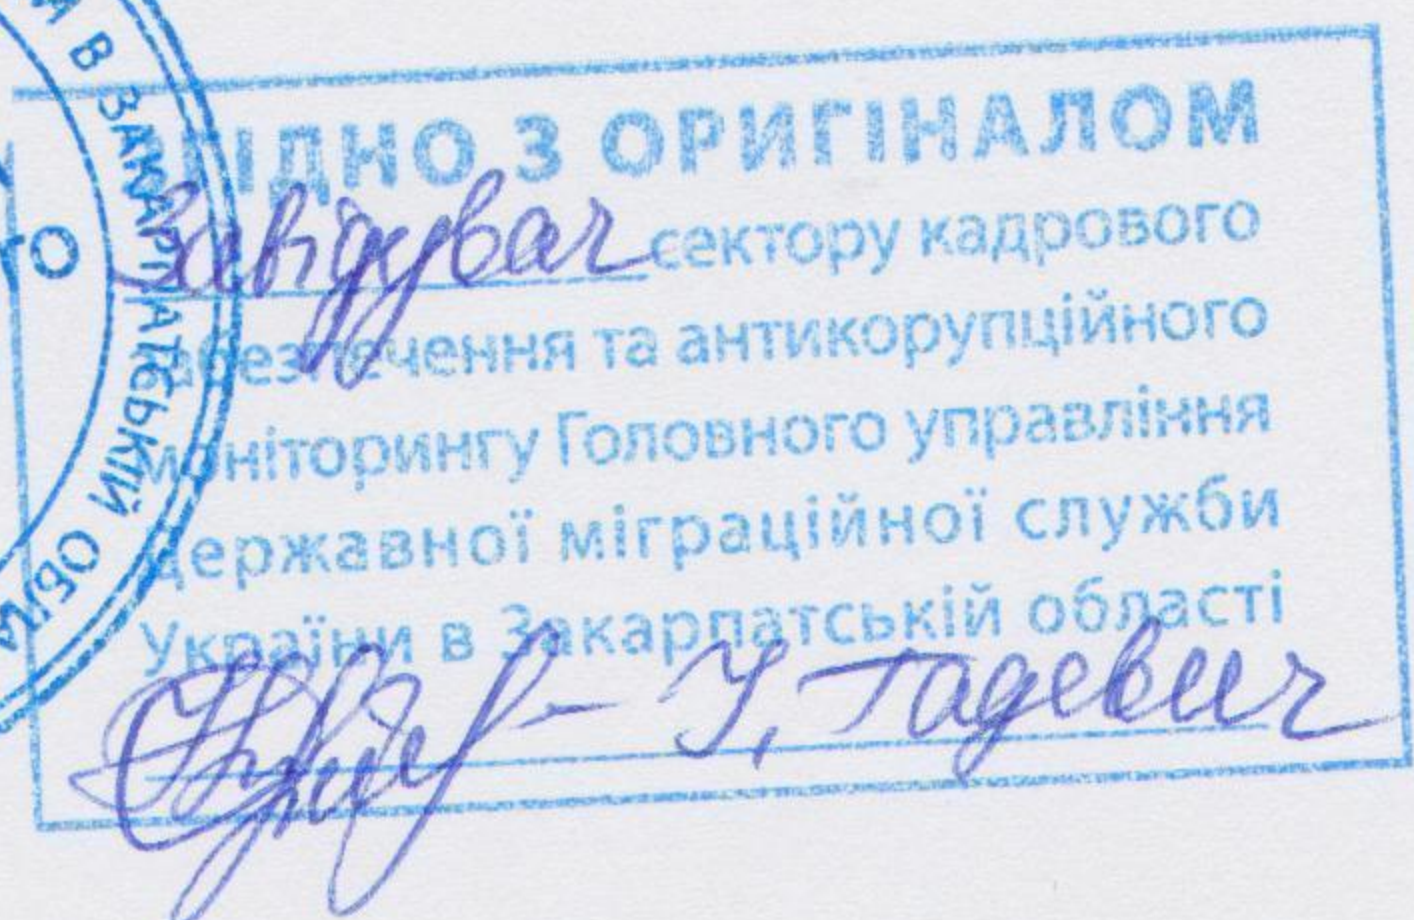 ЗГІДНО З ОРИГІНАЛОМ
Завідувач сектору кадрового
забезпечення та антикорупційного
моніторингу Головного управління
державної міграційної служби
України в Закарпатській області
У. Гадевич
В ЗАКАРПАТСЬКІЙ ОБЛА